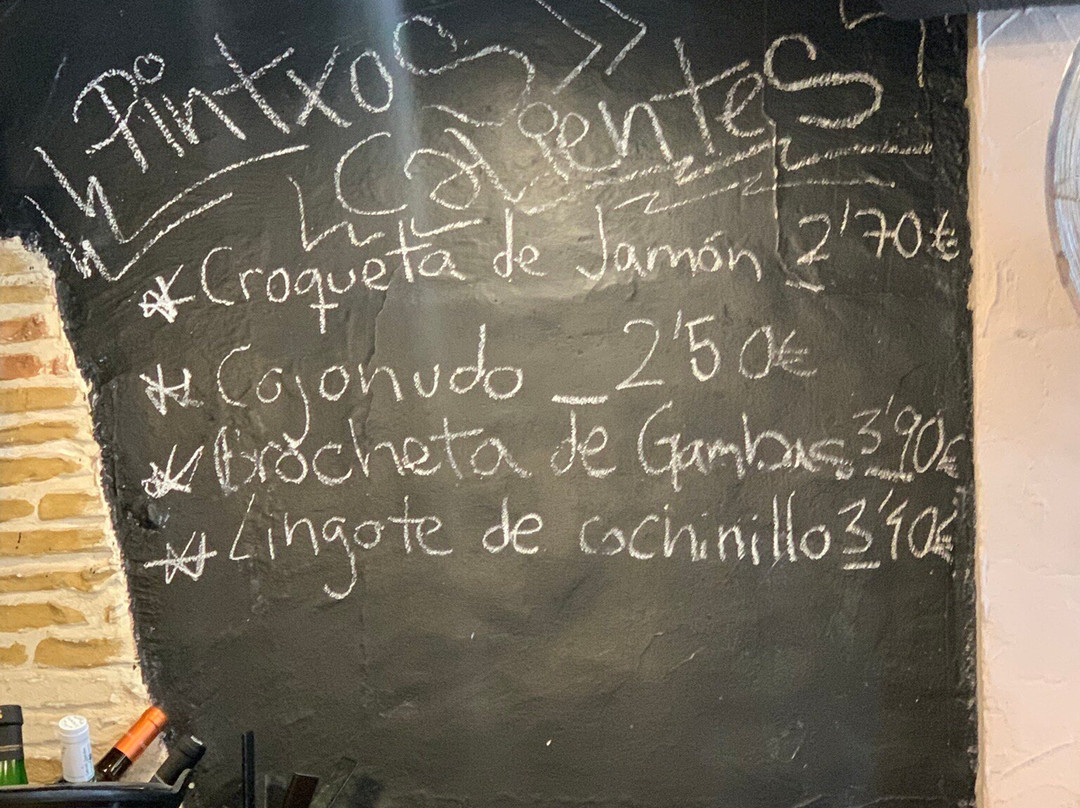 Pintxos
Calientes
* Croqueta de Jamón 2'70€
* Cojonudo _ 2'50€
* Brocheta de Gambas 3'90€
* Lingote de cochinillo 3'90€